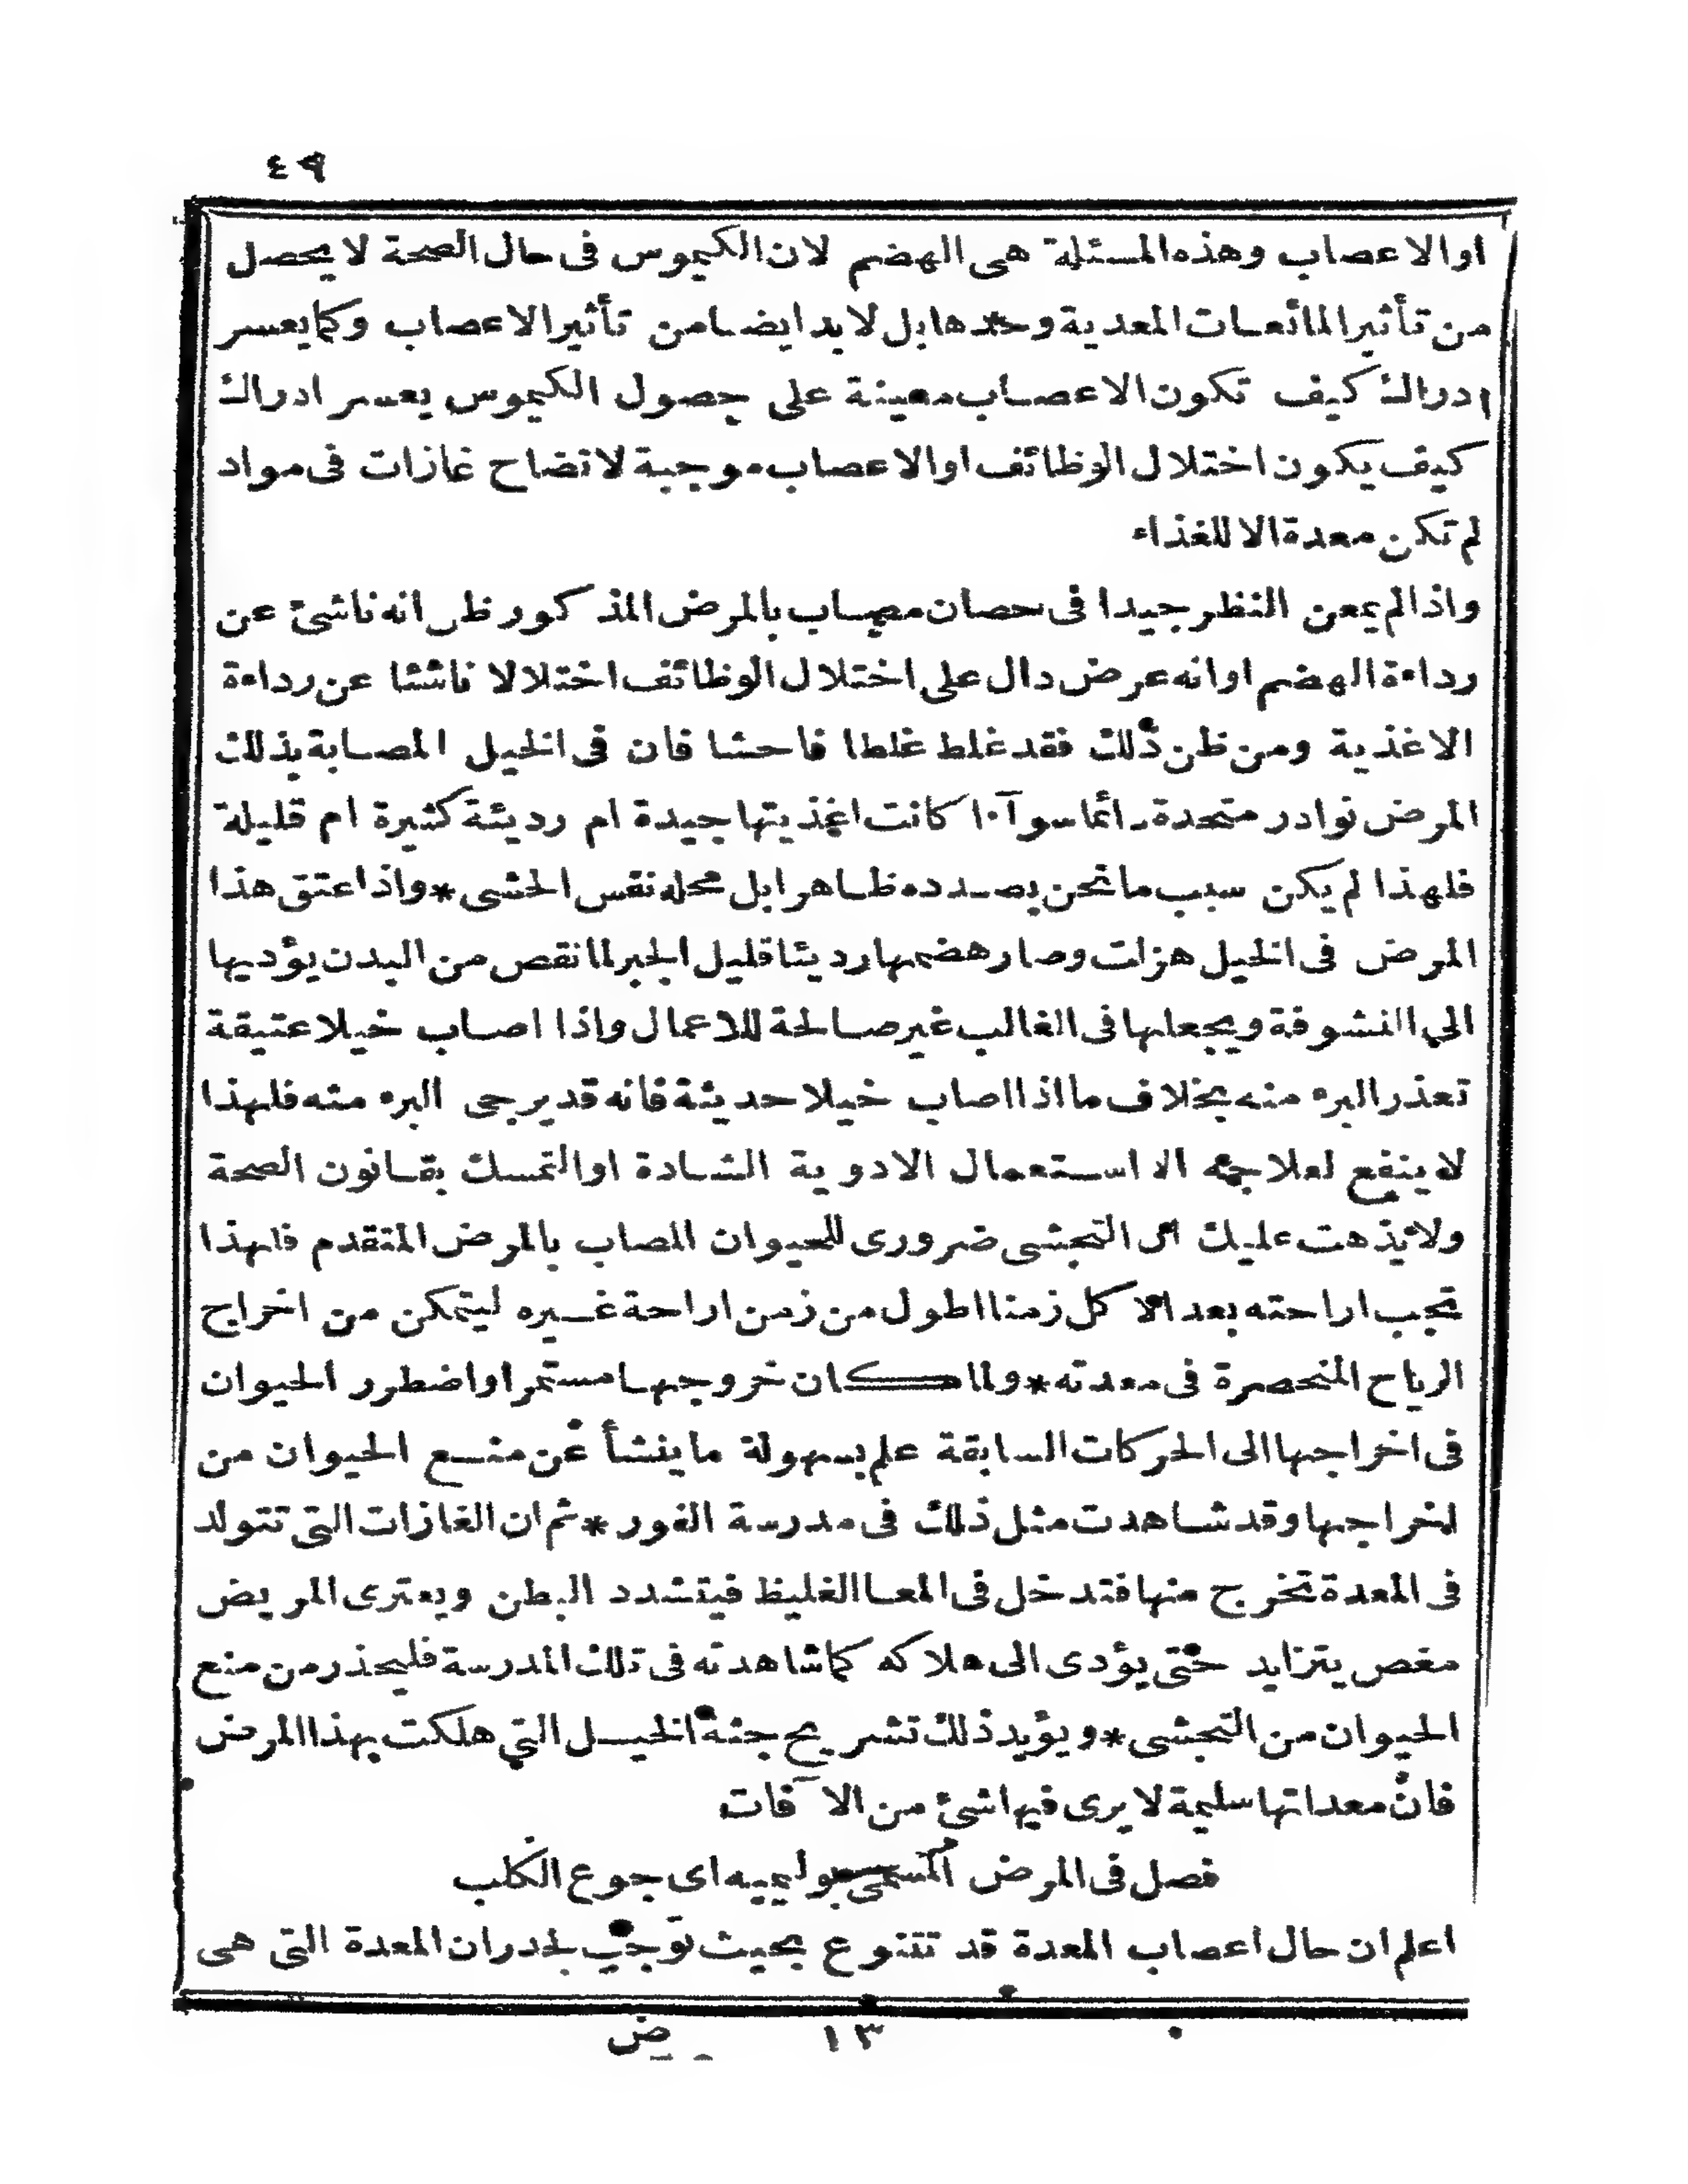 ٤٩
اوالاعصاب وهذه المسئلة هى الهضم لان الكيموس فى حال الصحة لا يحصل
من تأثير المائعات المعدية وحدها بل لا بد ايضا من تأثير الاعصاب وكما يعسر
ادراك كيف تكون الاعصاب معينة على حصول الكيموس يعسر ادراك
كيف يكون اختلال الوظائف اوالاعصاب موجبة لاتضاح غازات فى مواد
لم تكن معدة الا للغذاء
واذا لم يمعن النظر جيدا فى حصان مصاب بالمرض المذكور ظن انه ناشئ عن
رداءة الهضم اوانه عرض دال على اختلال الوظائف اختلالا ناشئا عن رداءة
الاغذية ومن ظن ذلك فقد غلط غلطا فاحشا فان فى الخيل المصابة بذلك
المرض نوادر متحدة دائما سوآء ا كانت اغذيتها جيدة ام رديئة كثيرة ام قليلة
فلهذا لم يكن سبب ما نحن بصدده ظاهرا بل محله نفس الحشى * واذا عتق هذا
المرض فى الخيل هزلت وصار هضمها رديئا قليل الجبر لما نقص من البدن يؤديها
الى النشوفة ويجعلها فى الغالب غير صالحة للاعمال واذا اصاب خيلا عتيقة
تعذر البرء منه بخلاف ما اذا اصاب خيلا حديثة فانه قد يرجى البرء منه فلهذا
لا ينفع لعلاجه الا استعمال الادوية الشادة اوالتمسك بقانون الصحة
ولا يذهب عليك ان التجشى ضرورى للحيوان المصاب بالمرض المتقدم فلهذا
تجب اراحته بعد الاكل زمنا اطول من زمن اراحة غيره ليتمكن من اخراج
الرياح المنحصرة فى معدته * ولما كان خروجها مستمرا واضطرر الحيوان
فى اخراجها الى الحركات السابقة علم بسهولة ما ينشأ عن منع الحيوان من
اخراجها وقد شاهدت مثل ذلك فى مدرسة الفور * ثم ان الغازات التى تتولد
فى المعدة تخرج منها فتدخل فى المعا الغليظ فيتشدد البطن ويعترى المريض
مغص يتزايد حتى يؤدى الى هلاكه كما شاهدته فى تلك المدرسة فليحذر من منع
الحيوان من التجشى * ويؤيد ذلك تشريح جثة الخيل التى هلكت بهذا المرض
فان معداتها سليمة لا يرى فيها شئ من الآفات
فصل فى المرض المسمى بوليميه اى جوع الكلب
اعلم ان حال اعصاب المعدة قد تتنوع بحيث توجب لجدران المعدة التى هى
١٣ ض